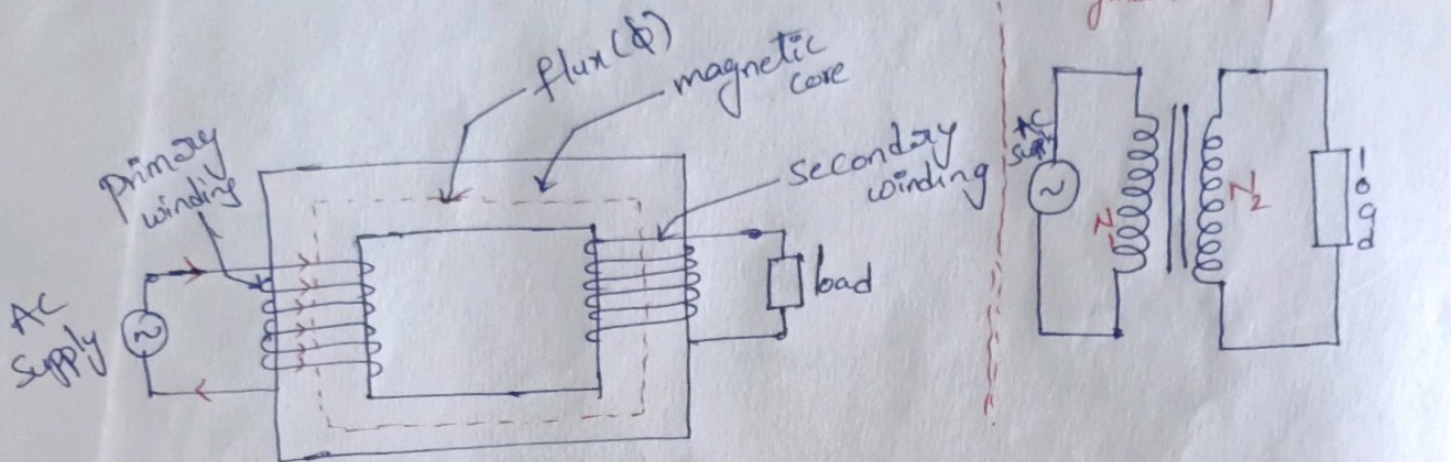 flux (ϕ)
magnetic
core
primary
winding
secondary
winding
AC
supply
load
AC
supply
N1
N2
load